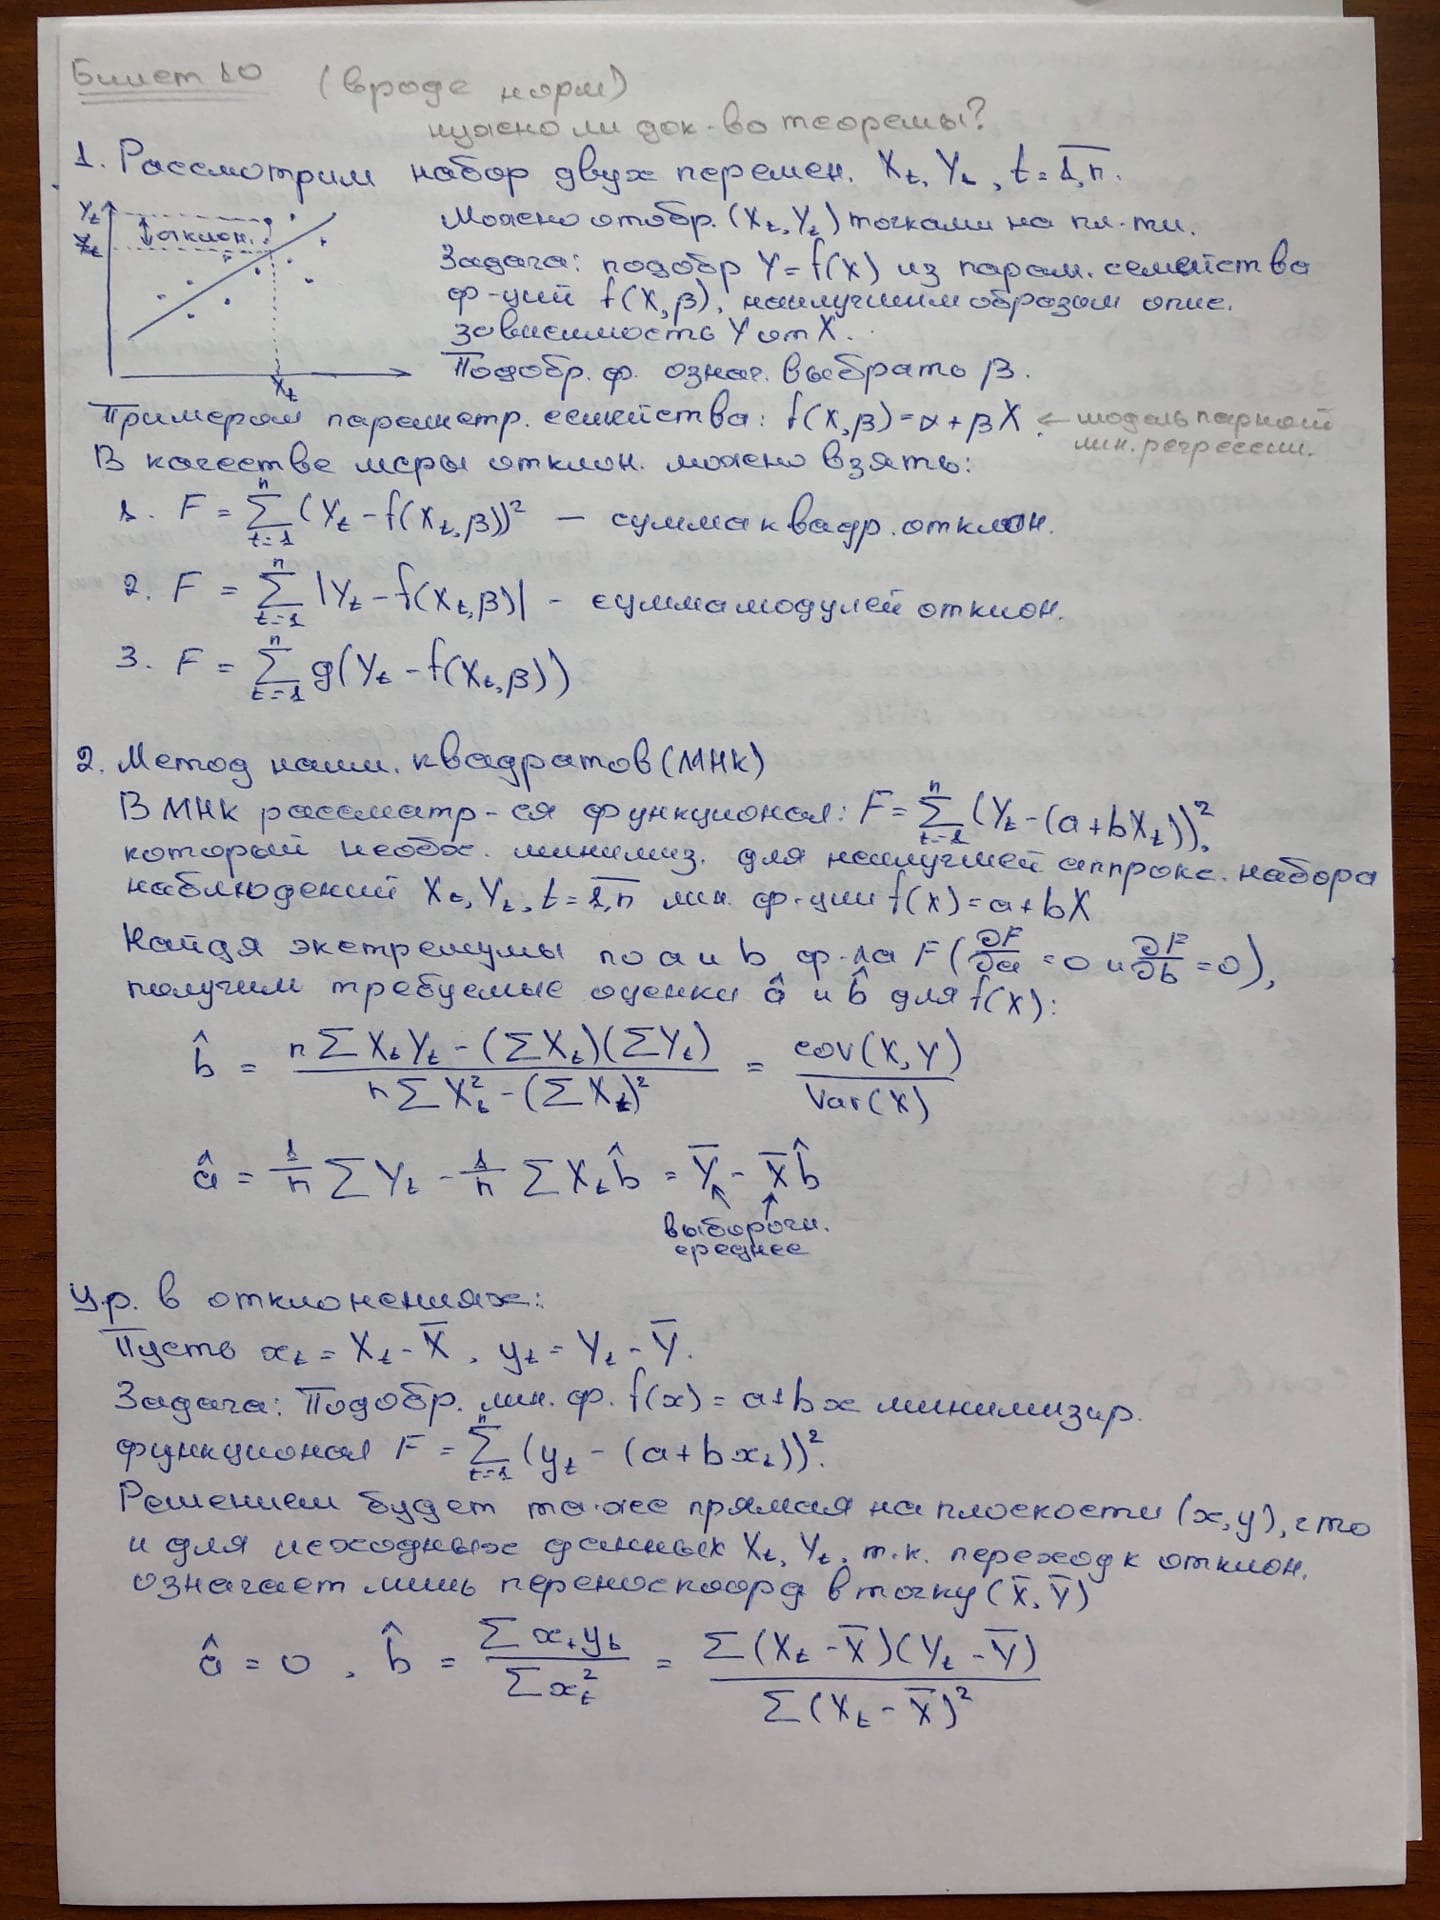 Билет 10 (вроде норм)
нужно ли док-во теоремы?
1. Рассмотрим набор двух перемен. Xₜ, Yₜ, t = 1,n.
Yₜ
отклон.
Xₜ
Можно отобр. (Xₜ, Yₜ) точками на пл-ти.
Задача: подобр Y = f(X) из парам. семейства
ф-ций f(X, β), наилучшим образом опис.
зависимость Y от X.
Подобр. ф. означ. выбрать β.
Примером параметр. семейства: f(X, β) = α + βX ← модель парной
лин. регрессии.
В качестве меры отклон. можно взять:
1. F = Σₜ₌₁ⁿ (Yₜ − f(Xₜ, β))² — сумма квадр. отклон.
2. F = Σₜ₌₁ⁿ |Yₜ − f(Xₜ, β)| — сумма модулей отклон.
3. F = Σₜ₌₁ⁿ g(Yₜ − f(Xₜ, β))
2. Метод наим. квадратов (МНК)
В МНК рассматр-ся функционал: F = Σₜ₌₁ⁿ (Yₜ − (a + bXₜ))²,
который необх. минимиз. для наилучшей аппрокс. набора
наблюдений Xₜ, Yₜ, t = 1,n лин. ф-ции f(x) = a + bX
Найдя экстремумы по a и b ф-ла F (∂F/∂a = 0 и ∂F/∂b = 0),
получим требуемые оценки â и b̂ для f(X):
b̂ = (n Σ XₜYₜ − (Σ Xₜ)(Σ Yₜ)) / (n Σ Xₜ² − (Σ Xₜ)²) = cov(X, Y) / Var(X)
â = 1/n Σ Yₜ − 1/n Σ Xₜ b̂ = Y̅ − X̅ b̂
выбороч.
среднее
Ур. в отклонениях:
Пусть xₜ = Xₜ − X̅, yₜ = Yₜ − Y̅.
Задача: Подобр. лин. ф. f(x) = a + bx минимизир.
функционал F = Σₜ₌₁ⁿ (yₜ − (a + bxₜ))².
Решением будет та же прямая на плоскости (x, y), что
и для исходных данных Xₜ, Yₜ, т.к. переход к отклон.
означает лишь перенос коорд в точку (X̅, Y̅)
â = 0, b̂ = Σ xₜyₜ / Σ xₜ² = Σ (Xₜ − X̅)(Yₜ − Y̅) / Σ (Xₜ − X̅)²